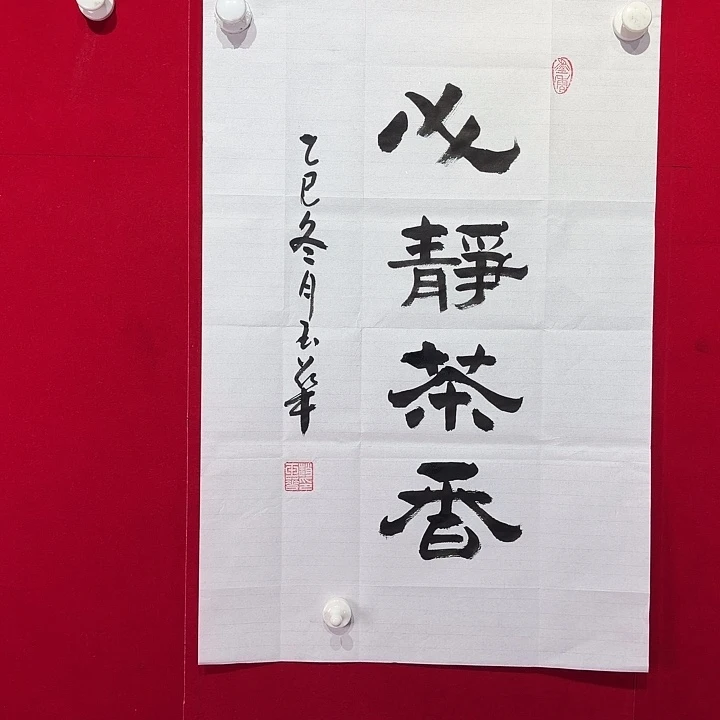 心靜茶香
乙巳冬月玉華